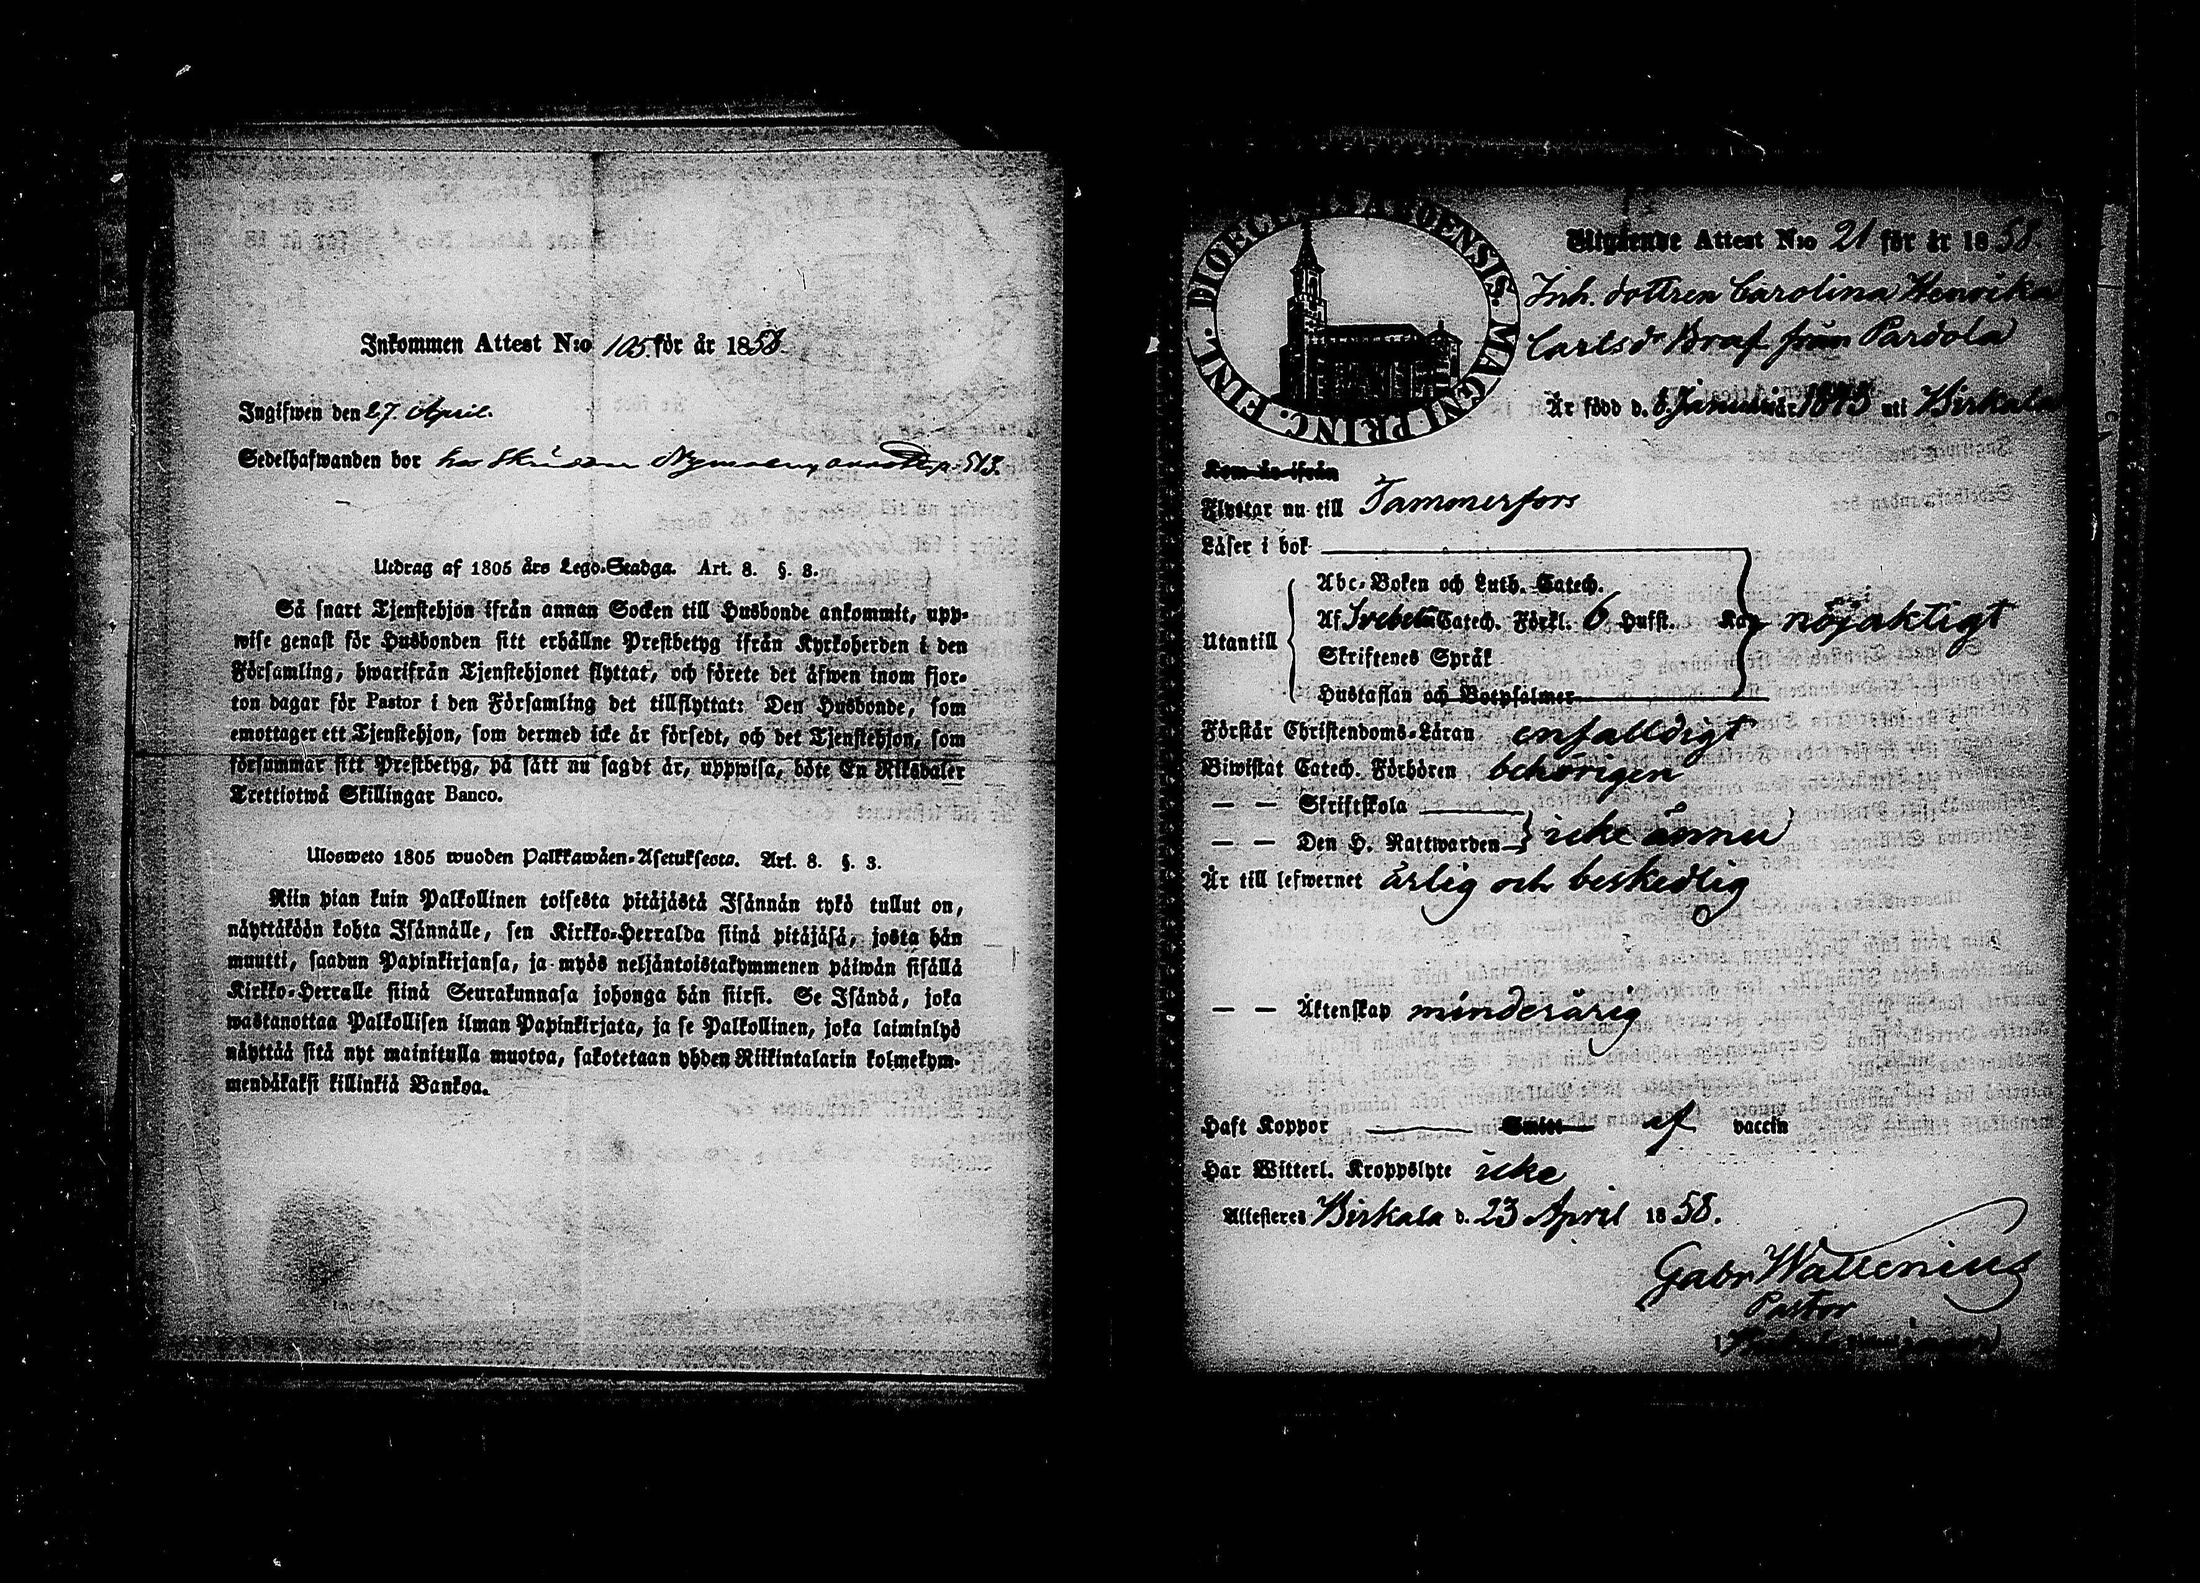 Inkommen Attest N:o 105 för år 1858.
Ingifwen den 27 April.
Sedelhafwanden bor hos p. 513.
Utdrag af 1805 års Lego-Stadga. Art. 8. §. 8.
Så snart Tjenstehjon ifrån annan Socken till Husbonde ankommit, upp-
wise genast för Husbonden sitt erhållne Prestbetyg ifrån Kyrkoherden i den
Församling, hwarifrån Tjenstehjonet flyttat, och förete det äfwen inom fjor-
ton dagar för Pastor i den Församling det tillflyttat: Den Husbonde, som
emottager ett Tjenstehjon, som dermed icke är försedt, och det Tjenstehjon, som
försummar sitt Prestbetyg, på sätt nu sagdt är, uppwisa, böte En Riksdaler
Trettiotwå Skillingar Banco.
Ulosweto 1805 wuoden Palkkawäen-Asetuksesta. Art. 8. §. 3.
Niin pian kuin Palkollinen toisesta pitäjästä Isännän tykö tullut on,
näyttäköön kohta Isännälle, sen Kirkko-Herralda siinä pitäjäsä, josta hän
muutti, saadun Papinkirjansa, ja myös neljäntoistakymmenen päiwän sisällä
Kirkko-Herralle siinä Seurakunnasa johonga hän siirsi. Se Isändä, joka
wastanottaa Palkollisen ilman Papinkirjata, ja se Palkollinen, joka laiminlyö
näyttää sitä nyt mainitulla muotoa, sakotetaan yhden Riikintalarin kolmekym-
mendäkaksi killinkiä Bankoa.
DIOECESIS ABOENSIS. MAGNI PRINC. FINL.
Utgående Attest N:o 21 för år 1858.
Inh. dottren Carolina Henrika
Carlsdr Braf från Pardola
Är född d. 6 Januari år 1843 uti Birkala
Kom år ifrån
Flyttar nu till Tammerfors
Läser i bok
Abc-Boken och Luth. Catech.
Af Svebelii Catech. Förkl. 6 Hufst. Kan nöjaktigt
Utantill
Skriftenes Språk
Hustaflan och Botpsalmer
Förstår Christendoms-Läran enfalldigt
Biwistat Catech. Förhören behörigen
— — Skriftskola
— — Den H. Nattwarden icke ännu
Är till lefwernet ärlig och beskedlig
— — Äktenskap minderårig
Haft Koppor Smitt af vaccin
Har Witterl. Kroppslyte icke
Attesteres Birkala d. 23 April 1858.
Gabr Wallenius
Pastor